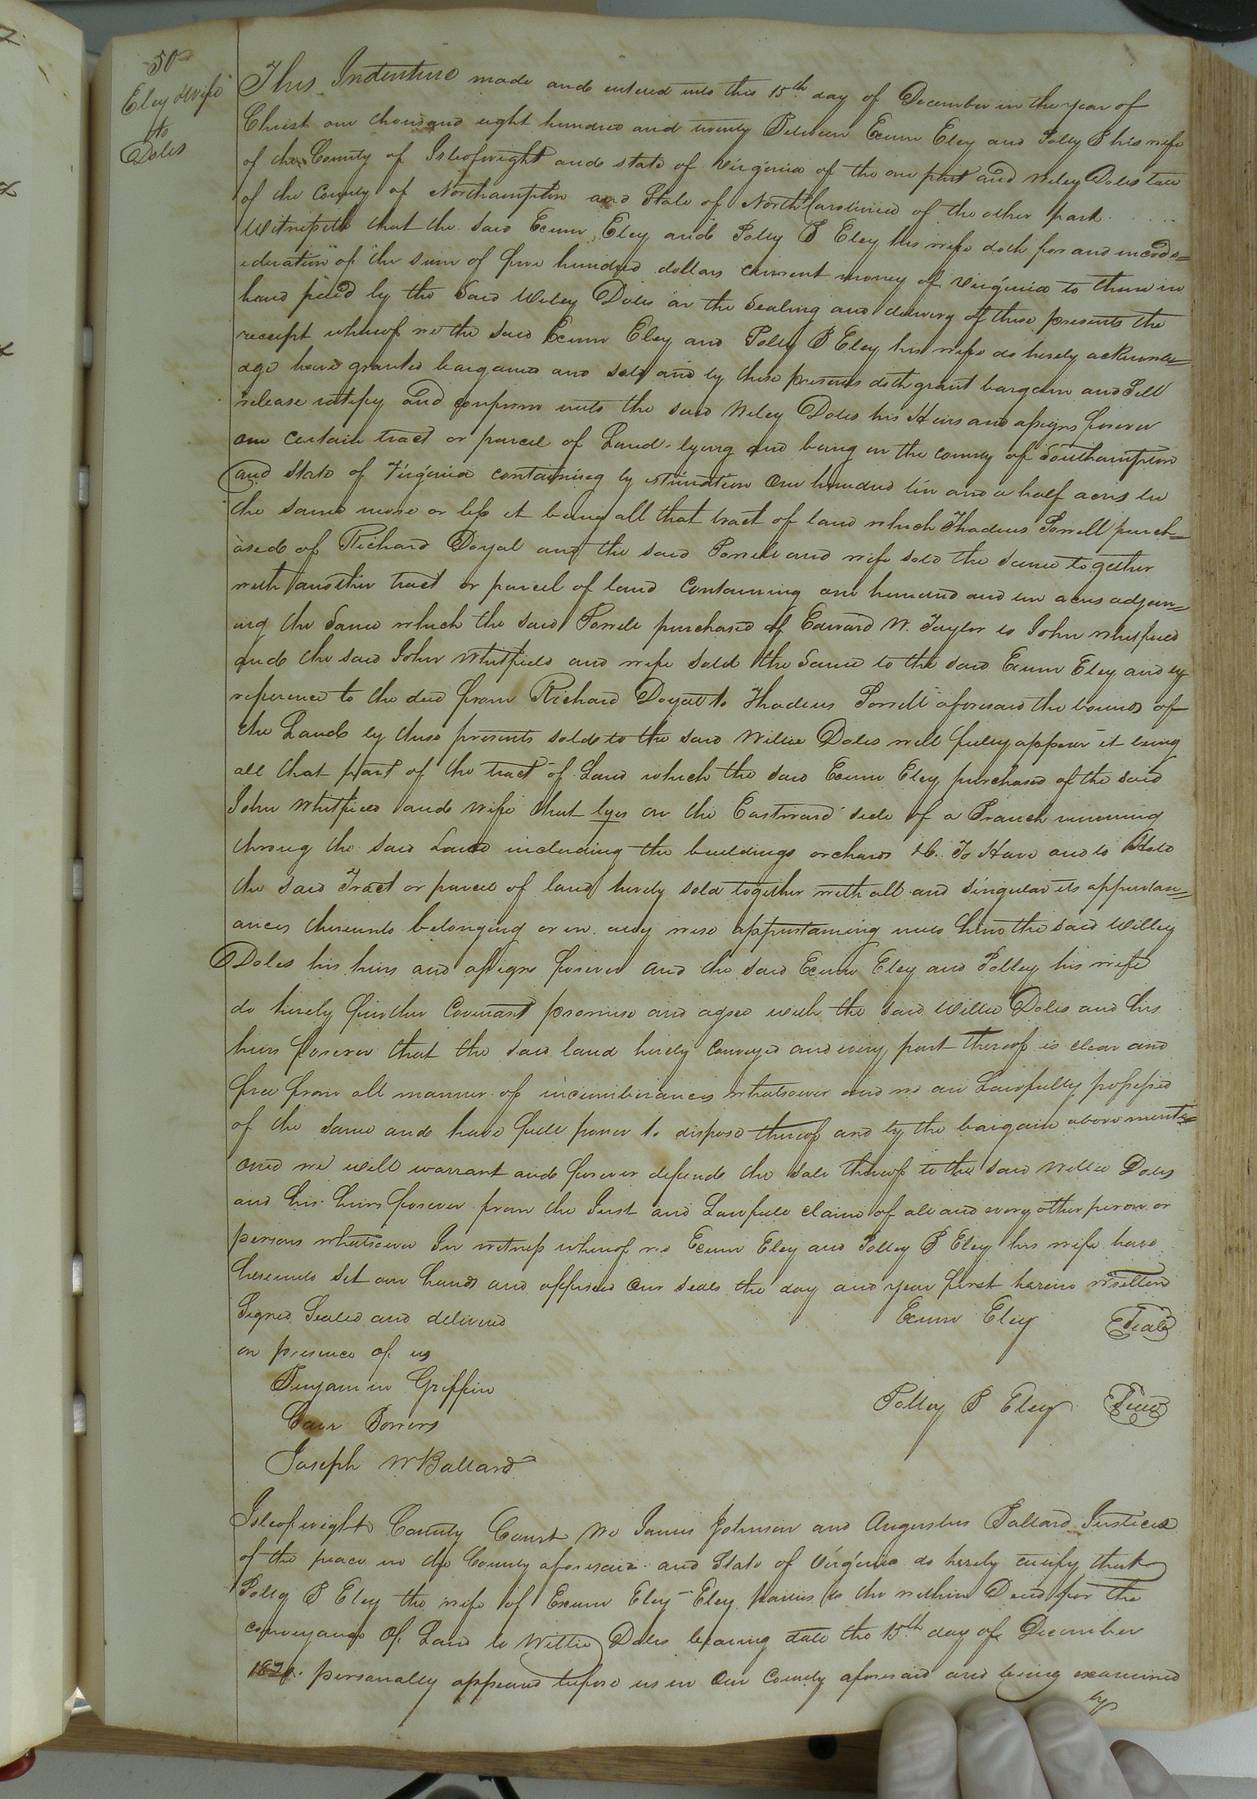 50
Eley & wife
to
Doles
This Indenture made and entered into this 15th day of December in the year of
Christ one thousand eight hundred and twenty Between Exum Eley and Polly B his wife
of the County of Isleofwight and state of Virginia of the one part and Wiley Doles
of the County of Northampton and State of North Carolinia of the other part
Witnesseth that the said Exum Eley and Polly B Eley his wife doth for and in cons=
ideration of the sum of five hundred dollars current money of Virginia to them in
hand paid by the Said Wiley Doles at the Sealing and delivery of these presents the
receipt whereof we the said Exum Eley and Polly B Eley his wife do hereby acknowle=
dge have granted bargained and sold and by these presents doth grant bargain and Sell
release ratify and confirm unto the said Wiley Doles his Heirs and assigns forever
one certain tract or parcel of Land lying and being in the county of Southampton
and State of Virginia containing by estimation One hundred ten and a half acres be
the same more or less it being all that tract of land which Thadeus Powell purch=
ased of Richard Doyal and the said Powell and wife sold the same together
with another tract or parcel of land containing one hundred and ten acres adjoin=
ing the Same which the said Powell purchased of Edward W. Taylor to John Whitfield
and the said John Whitfield and wife Sold the Same to the said Exum Eley and by
reference to the deed from Richard Doyal to Thadeus Powell aforesaid the bounds of
the Land by these presents sold to the said Willie Doles will fully appear it being
all that part of the tract of Land which the said Exum Eley purchased of the said
John Whitfield and wife that lyes on the Eastward side of a Branch running
throug the said Land including the buildings orchard &c. To Have and to Hold
the said Tract or parcel of land hereby sold together with all and Singular its appurtan=
ances thereunto belonging or in any wise appurtaining unto him the said Willey
Doles his heirs and assigns forever and the said Exum Eley and Polley his wife
do hereby further Covenant promise and agree with the said Willie Doles and his
heirs forever that the said land hereby conveyed and every part thereof is clear and
free from all manner of incumberances whatsoever and we are Lawfully possessed
of the Same and have full power to dispose thereof and by the bargain above menti=
oned we will warrant and forever defend the sale thereof to the said Willie Doles
and his heirs forever from the Just and Lawfull claim of all and every other person or
persons whatsoever In witness whereof we Exum Eley and Polley B Eley his wife have
hereunto set our hands and affixed our seals the day and year first herein written
Signed Sealed and delivered Exum Eley Seal
in presence of us
Benjamin Griffin
Polley B Eley Seal
Carr Bowers
Joseph W Ballard
Isleofwight County Court We James Johnson and Augustus Ballard Justices
of the peace in the County aforesaid and State of Virginia do hereby certify that
Polly B Eley the wife of Exum Eley Eley parties to the within Deed for the
conveyance Of Land to Willie Doles bearing date the 15th day of December
1820. personally appeared before us in Our County aforesaid and being examined
by